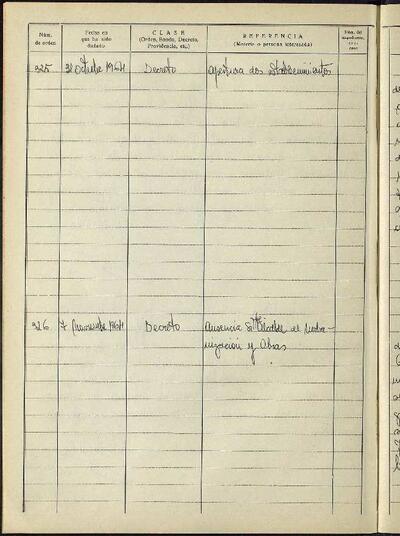 Núm.
de orden
Fecha en
que ha sido
dictado
CLASE
(Orden, Bando, Decreto,
Providencia, etc.)
REFERENCIA
(Materia o persona interesada)
Núm. del
expediente,
325 31 Octubre 1964 Decreto apertura dos establecimientos
326 7 Noviembre 1964 Decreto Ausencia Sr. Alcalde de
y Obras